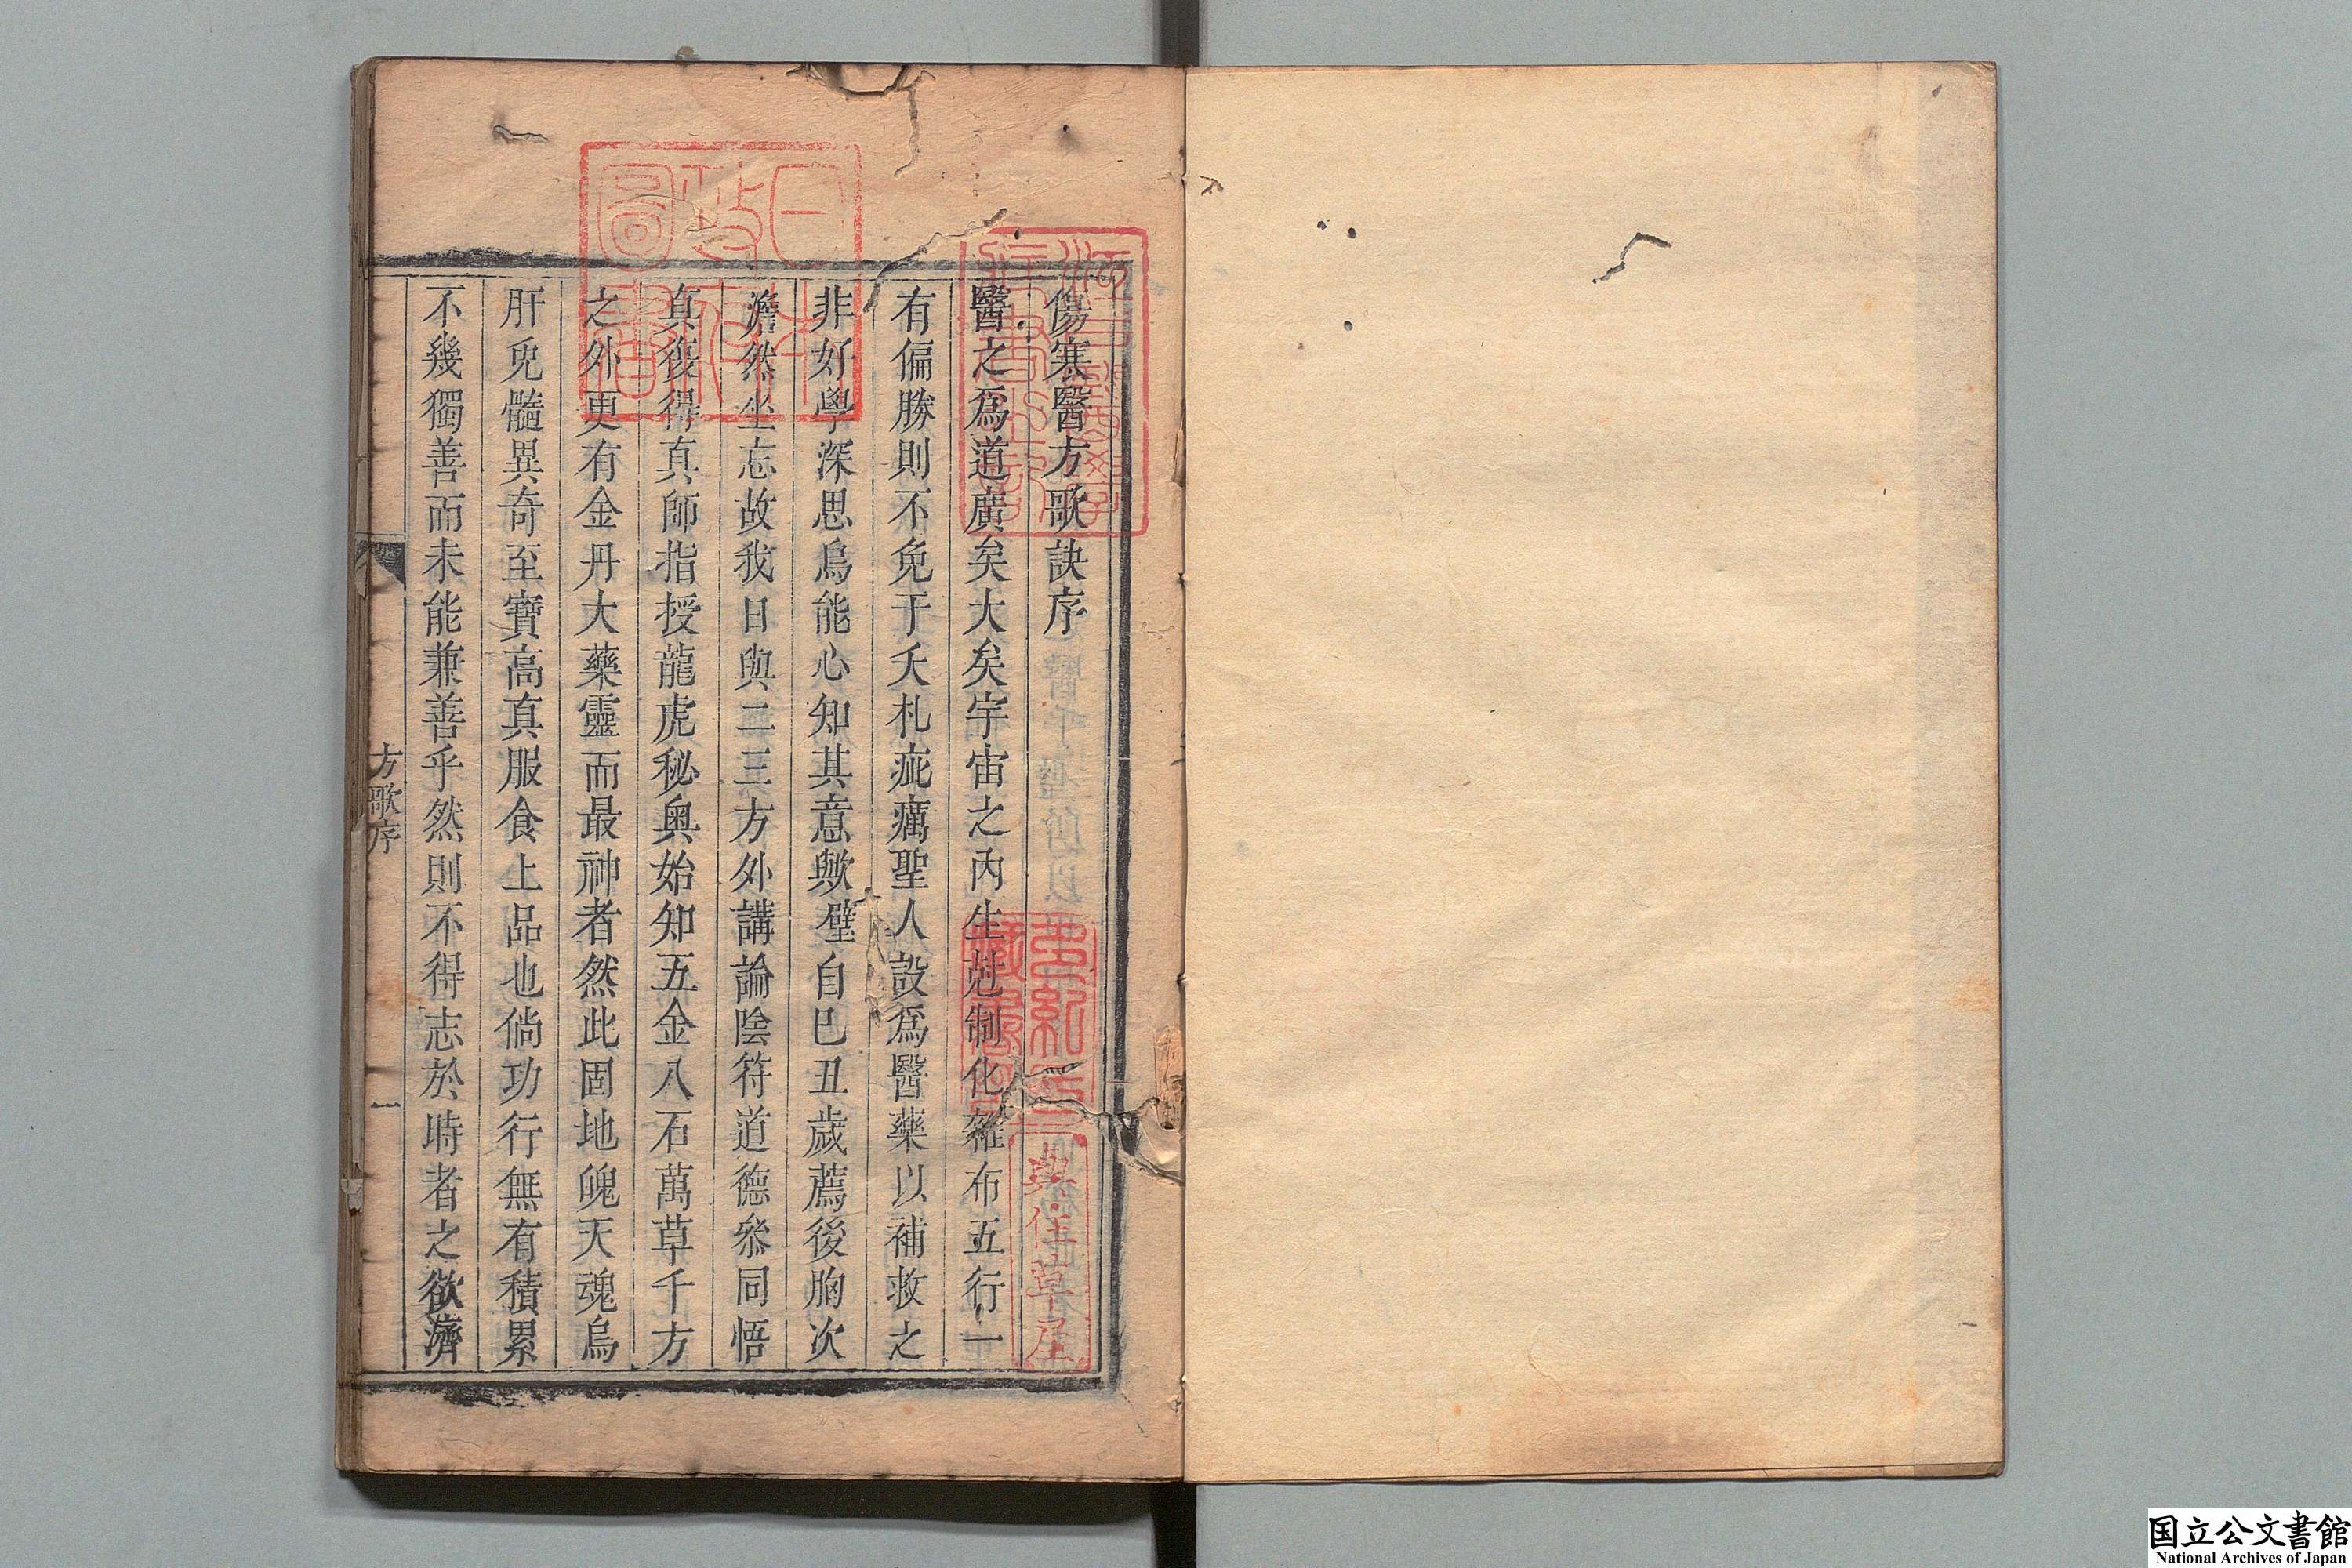 傷寒醫方歌訣序
醫之爲道廣矣大矣宇宙之內生尅制化雜布五行一
有偏勝則不免于夭札疵癘聖人設爲醫藥以補救之
非好學深思烏能心知其意歟壁自巳丑歲薦後胸次
澹然坐忘故我日與二三方外講論陰符道德叅同悟
真復得真師指授龍虎秘奥始知五金八石萬草千方
之外更有金丹大藥靈而最神者然此固地魄天魂烏
肝兎髓異奇至寶高真服食上品也倘功行無有積累
不幾獨善而未能兼善乎然則不得志於時者之欲濟
方歌序
一
日本
政府
圖書
弘前醫官澁
江氏藏書記
多紀氏
藏書印
奘住草屋
国立公文書館
National Archives of Japan